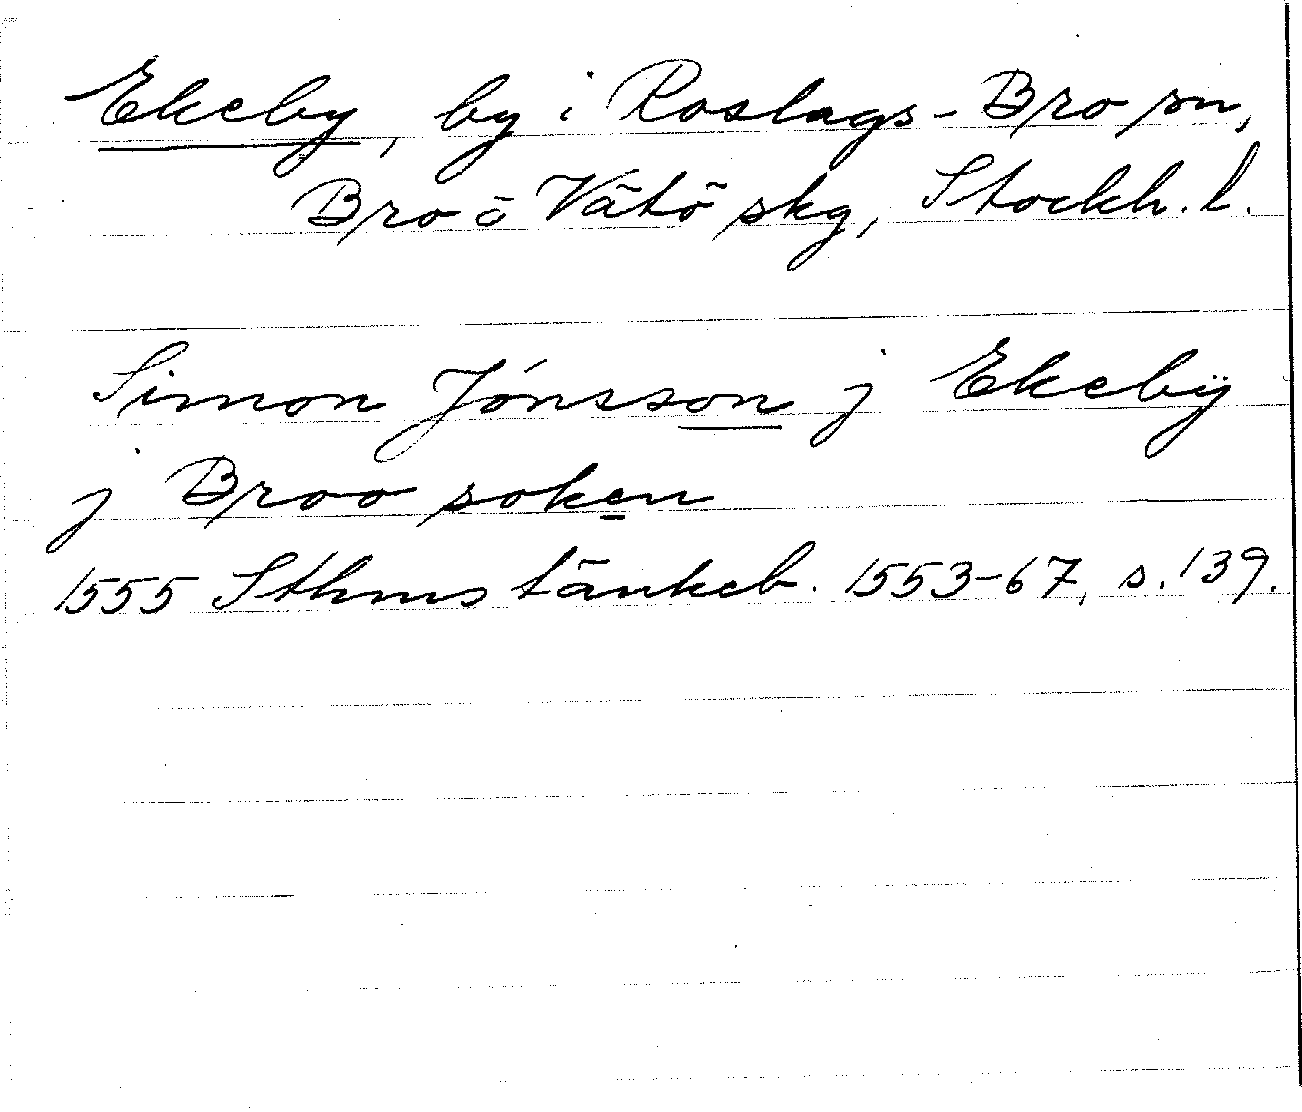 Ekeby, by i Roslags-Bro sn,
Bro o Vätö skg, Stockh. l.
Simon Jónsson j Ekebÿ
j Broo soken
1555 Sthms tänkeb. 1553-67, s. 139.